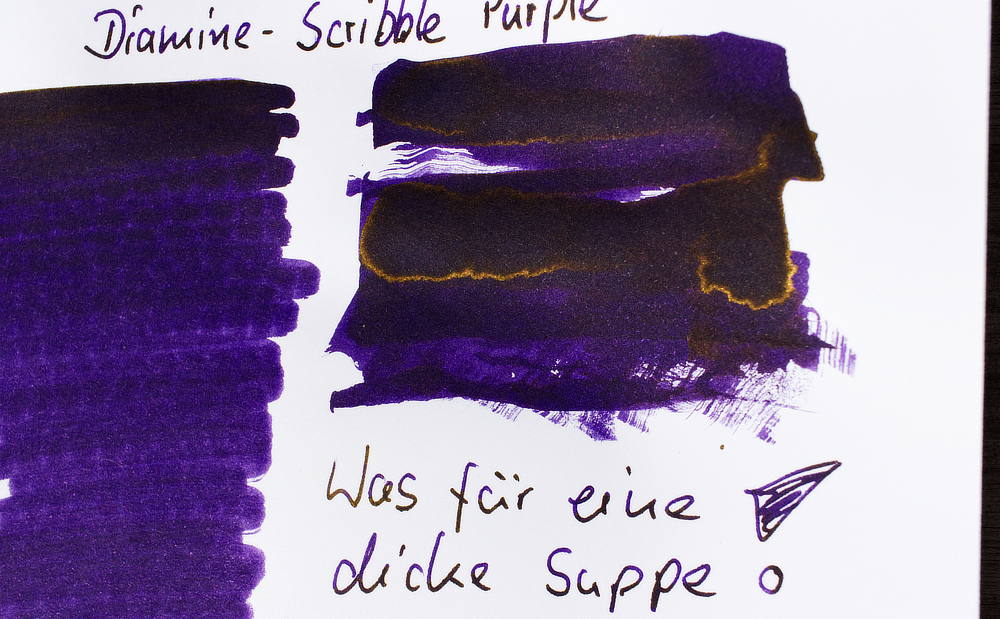 Diamine - Scribble Purple
Was für eine
dicke Suppe !